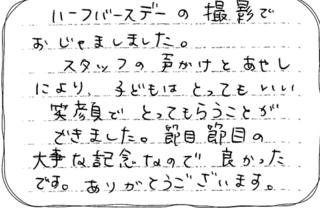 ハーフバースデーの撮影で
おじゃましました。
スタッフの声かけとあやし
により、子どもはとってもいい
笑顔でとってもらうことが
できました。節目節目の
大事な記念なので良かった
です。ありがとうございます。